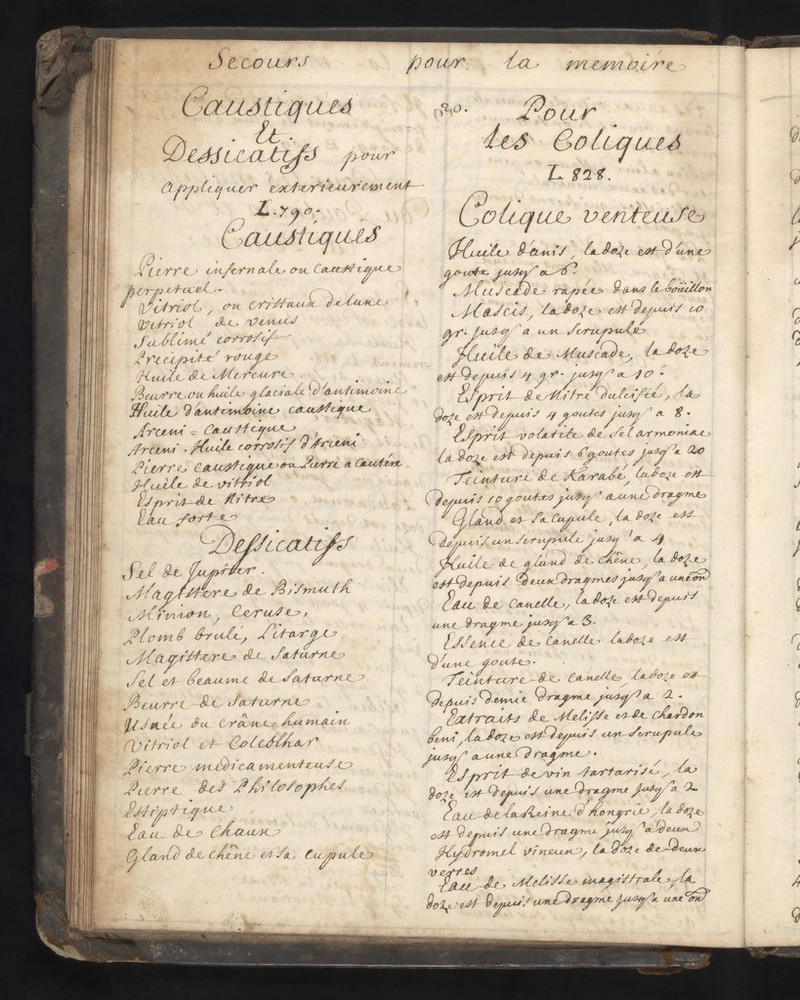 Secours pour la memoire
Caustiques
Et
Dessicatifs pour
appliquer exterieurement
L. 790.
Caustiques
Pierre infernale ou Caustique
perpetuel.
Vitriol, ou cristaux de lune
Vitriol de Venus
Sublimé corrosif
Precipité rouge
Huile de Mercure
Beurre ou huile glaciale d'antimoine
Huile d'antimoine caustique
Arceni = Caustique
Arceni - Huile corrosif d'Arceni
Pierre caustique ou Pierre a Cautére
Huile de vitriol
Esprit de Nitre
Eau forte
Dessicatifs
Sel de Jupiter.
Magistere de Bismuth
Minion, Ceruse,
Plomb brulé, Litarge
Magistere de Saturne
Sel et beaume de Saturne
Beurre de Saturne
Usnée du crâne humain
Vitriol et Colcolhar
Pierre medicamenteuse
Pierre des Philosophes
Estiptique
Eau de Chaux
Gland de chêne et sa cupule
Pour
les Coliques
L 828.
Colique venteuse
Huile d'anis, la doze est d'une
goute jusq' a 6.
Muscade rapée dans le boüillon
Mascis, la doze est depuis 10
gr. jusq' a un Scrupule
Huile de Muscade, la doze
est depuis 4 gr. jusq' a 10.
Esprit de Nitre dulcifié, la
doze est depuis 4 goutes jusq' a 8.
Esprit volatile de Sel armoniac
la doze est depuis 6 goutes jusq' a 20
Teinture de Karabé, la doze est
depuis 10 goutes jusq' a une dragme
Gland et Sa Cupule, la doze est
depuis un Scrupule jusq' a 4
Huile de gland de chêne, la doze
est depuis Deux dragmes jusq' a une on
Eau de Canelle, la doze est depuis
une dragme jusq' a 3.
Essence de Canelle la doze est
d'une goute.
Teinture de Canelle la doze est
depuis demie dragme jusq' a 2.
Extraits de Melisse et de Chardon
beni, la doze est depuis un Scrupule
jusq' a une Dragme.
Esprit de vin tartarisé, la
doze est depuis une dragme jusq' a 2
Eau de la Reine d'hongrie, la doze
est depuis une Dragme jusq' a deux
Hydromel vineux, la doze de deux
verres
Eau de Melisse magistrale, la
doze est depuis une dragme jusq' a une on